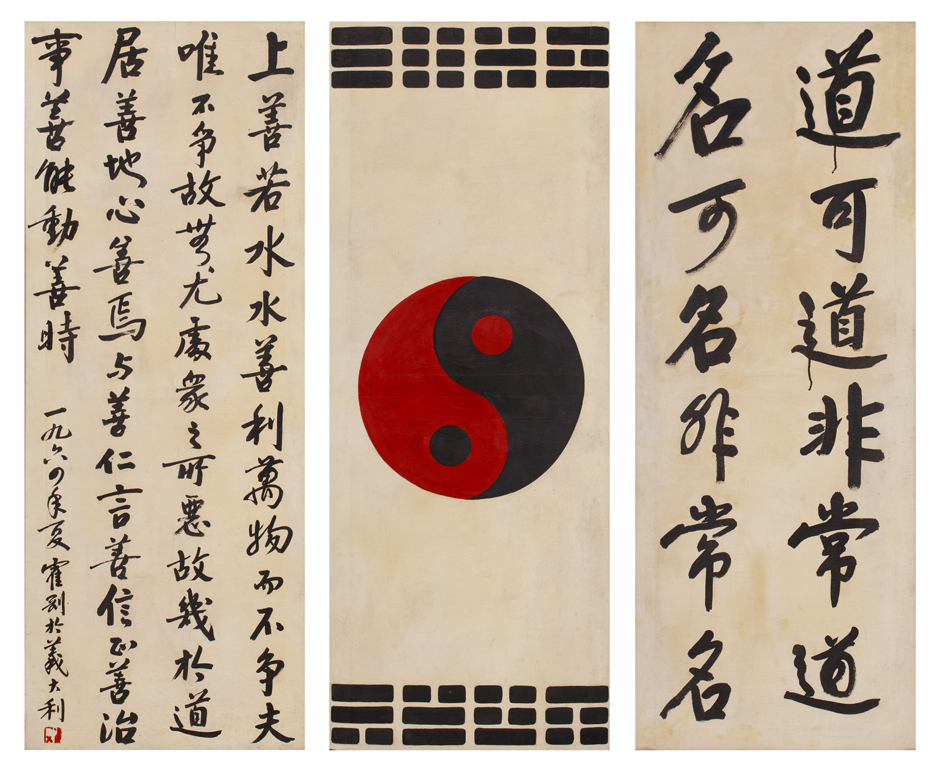 道可道非常道
名可名非常名
上善若水水善利萬物而不争夫
唯不争故無尤處衆之所惡故幾於道
居善地心善焉与善仁言善信正善治
事善能動善時
一九六四年夏霍剛於義大利